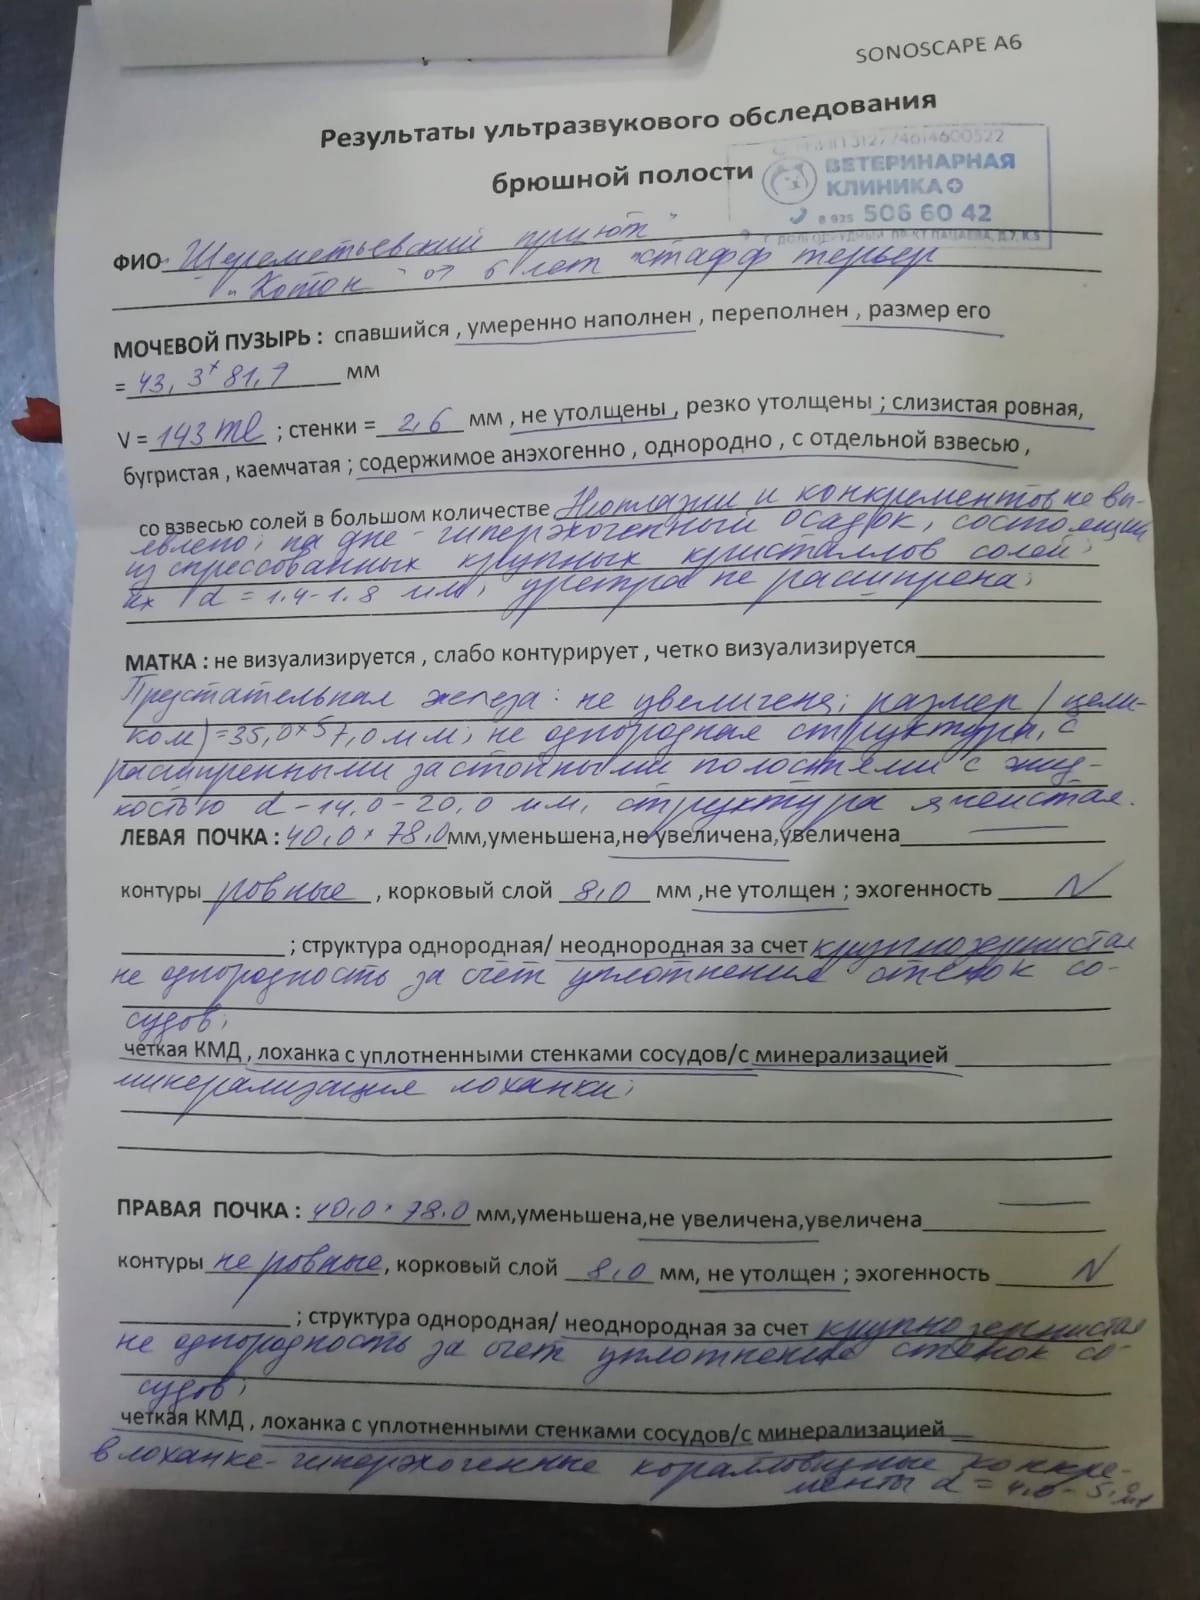 SONOSCAPE A6
Результаты ультразвукового обследования
брюшной полости
312774614600522
ВЕТЕРИНАРНАЯ
КЛИНИКА
8 925 506 60 42
Г. ДОЛГОПРУДНЫЙ, ПР-КТ ПАЦАЕВА, Д.7, К.3
ФИО "Шереметьевский приют"
"Котон" ♂ 6 лет стафф терьер
МОЧЕВОЙ ПУЗЫРЬ : спавшийся , умеренно наполнен , переполнен , размер его
= 43,3 х 81,7 мм
V = 143 ml ; стенки = 2,6 мм , не утолщены , резко утолщены ; слизистая ровная,
бугристая , каемчатая ; содержимое анэхогенно , однородно , с отдельной взвесью ,
со взвесью солей в большом количестве Неоплазии и конкрементов не вы-
явлено; на дне - гиперэхогенный осадок, состоящий
из спрессованных крупных кристаллов солей;
их d = 1.4-1.8 мм; уретра не расширена;
МАТКА : не визуализируется , слабо контурирует , четко визуализируется
Предстательная железа: не увеличена; размер (цели-
ком) = 35,0 х 57,0 мм; не однородная структура, с
расширенными застойными полостями с жид-
костью d - 14,0 - 20,0 мм, структура ячеистая.
ЛЕВАЯ ПОЧКА : 40,0 х 78,0 мм,уменьшена,не увеличена,увеличена
контуры ровные , корковый слой 8,0 мм ,не утолщен ; эхогенность N
; структура однородная/ неоднородная за счет крупнозернистая
не однородность за счёт уплотнения стенок со-
судов;
четкая КМД , лоханка с уплотненными стенками сосудов/с минерализацией
минерализация лоханки;
ПРАВАЯ ПОЧКА : 40,0 х 78,0 мм,уменьшена,не увеличена,увеличена
контуры не ровные, корковый слой 8,0 мм, не утолщен ; эхогенность N
; структура однородная/ неоднородная за счет крупнозернистая
не однородность за счет уплотнения стенок со-
судов;
четкая КМД , лоханка с уплотненными стенками сосудов/с минерализацией
в лоханке - гиперэхогенные коралловидные конкре-
менты d = 4,0 - 5,0 мм